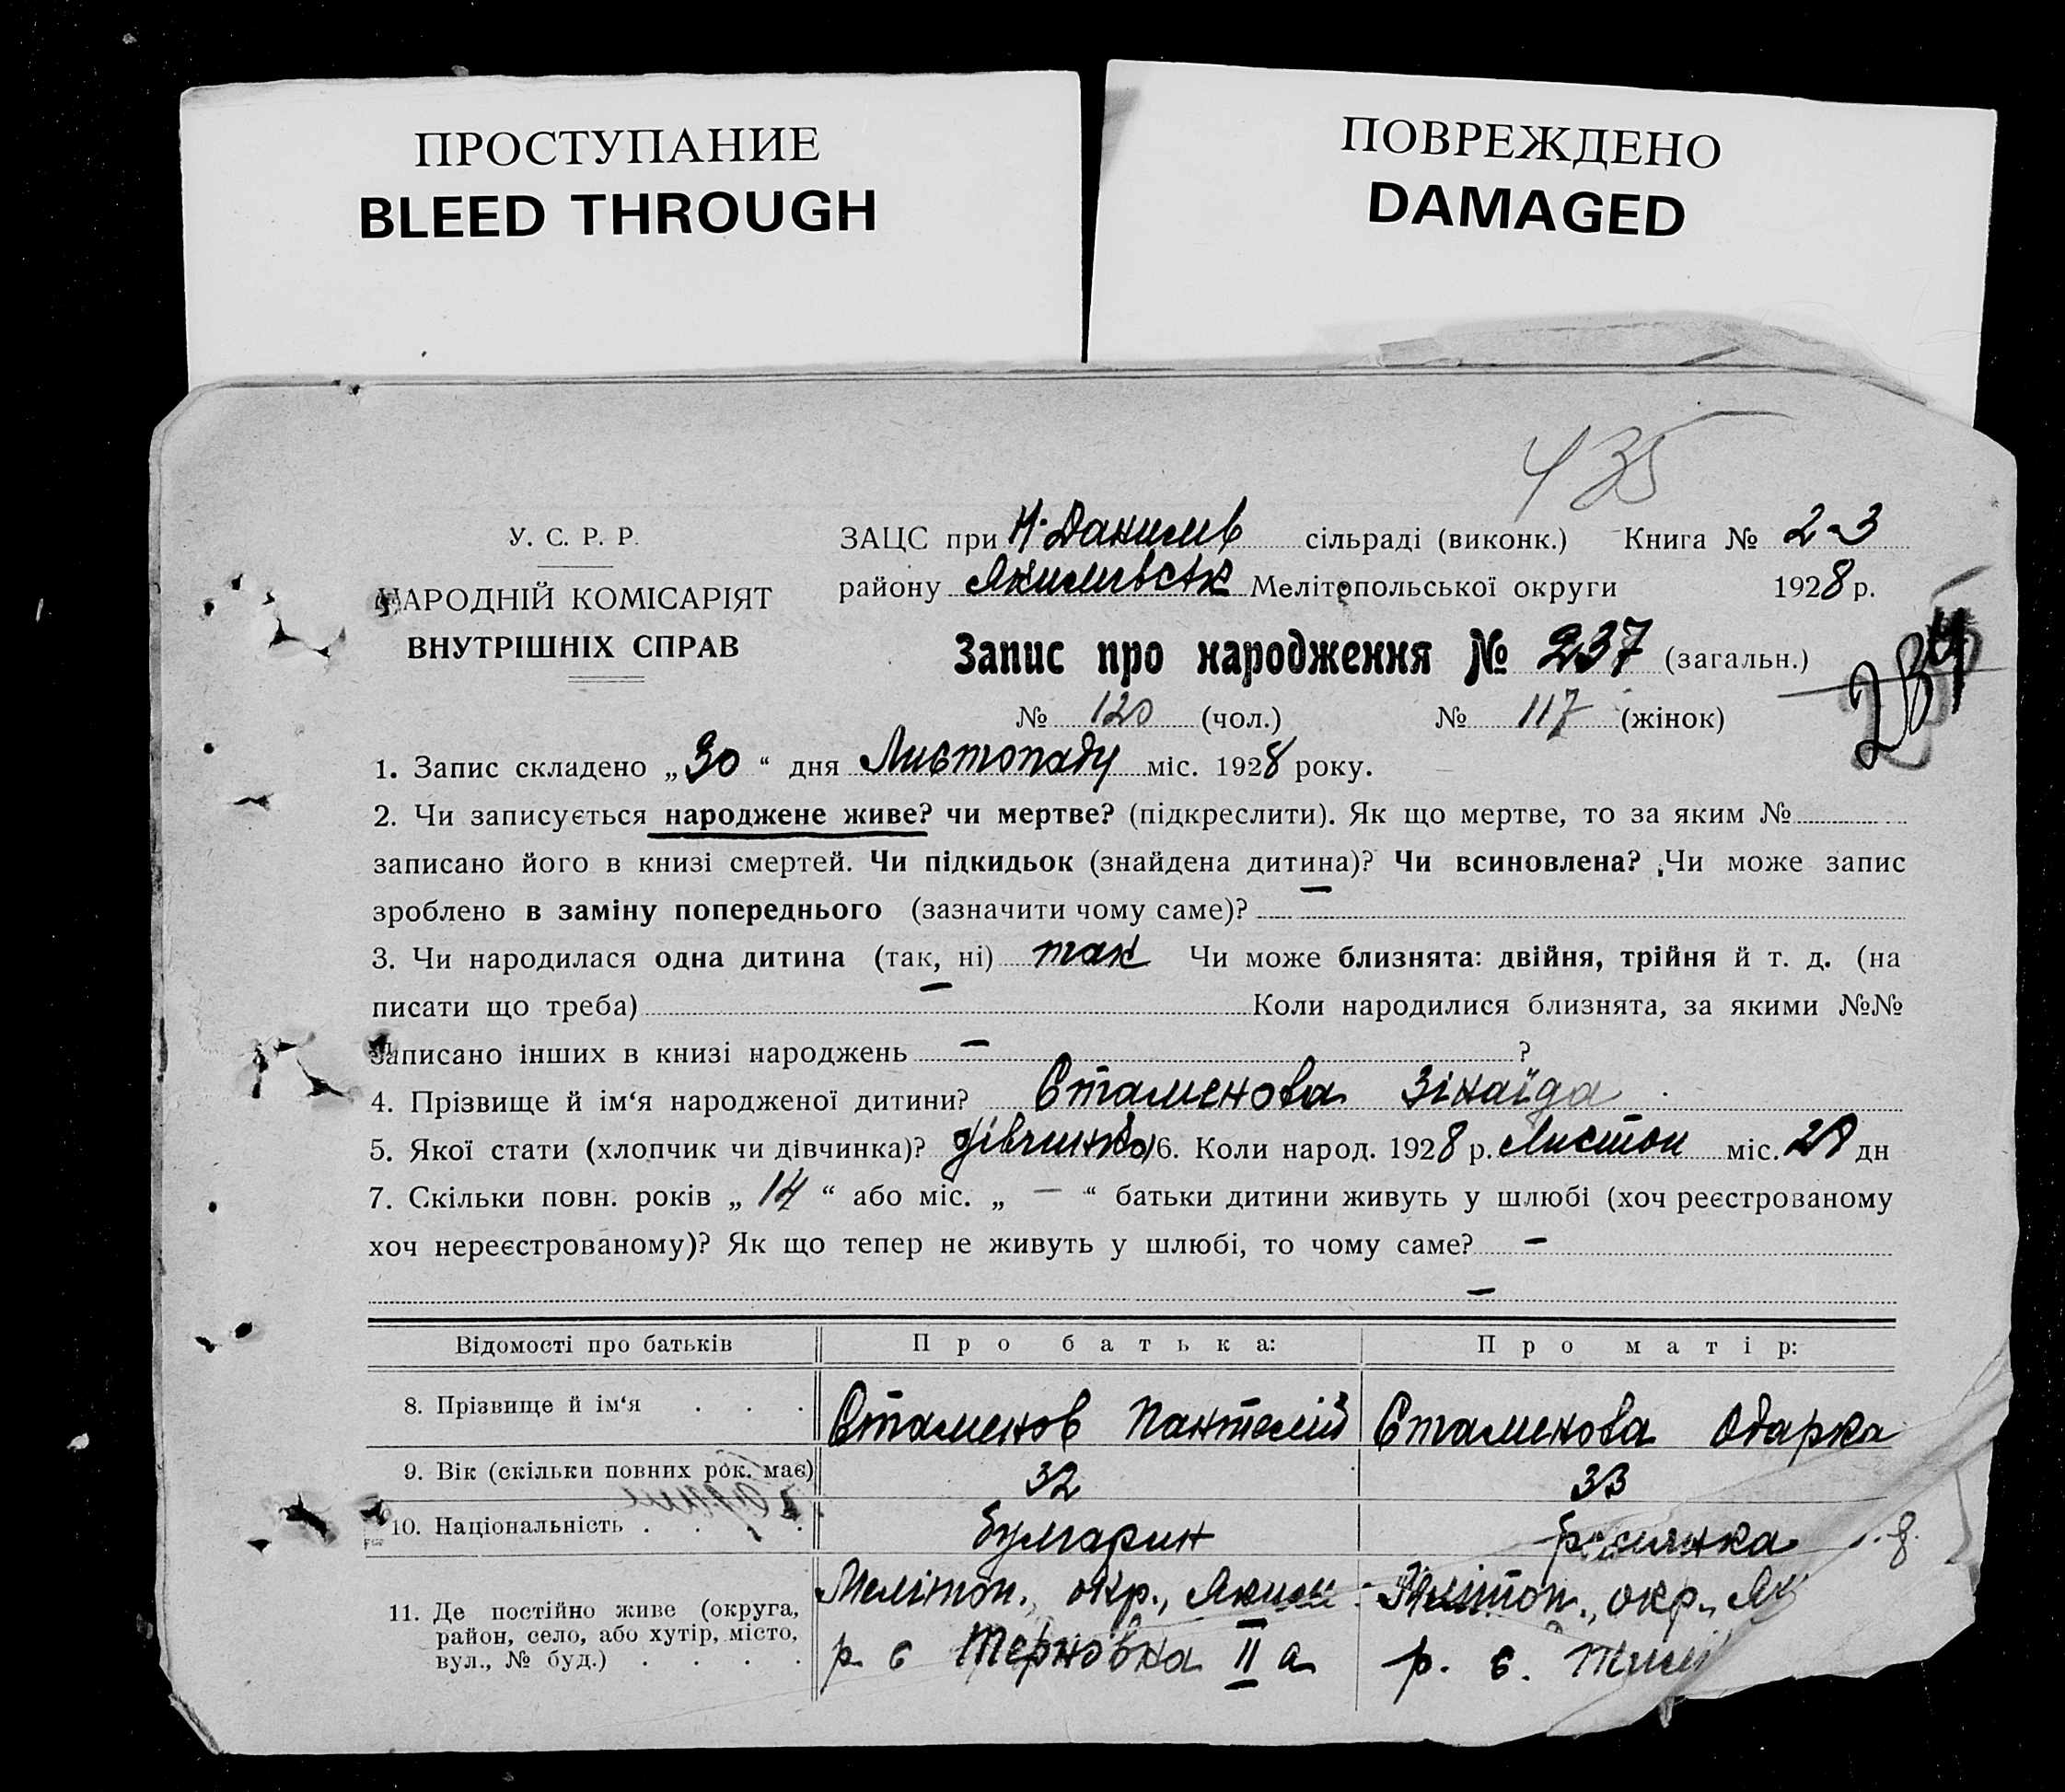 ПРОСТУПАНИЕ
BLEED THROUGH
ПОВРЕЖДЕНО
DAMAGED
435
У. С. Р. Р.
НАРОДНІЙ КОМІСАРІЯТ
ВНУТРІШНІХ СПРАВ
ЗАЦС при Н-Данилів сільраді (виконк.) Книга № 2-3
району Якимівськ Мелітопольської округи 1928 р.
Запис про народження № 237 (загальн.)
234
№ 120 (чол.) № 117 (жінок)
1. Запис складено „30“ дня Листопаду міс. 1928 року.
2. Чи записується народжене живе? чи мертве? (підкреслити). Як що мертве, то за яким №
записано його в книзі смертей. Чи підкидьок (знайдена дитина)? Чи всиновлена? Чи може запис
зроблено в заміну попереднього (зазначити чому саме)? —
3. Чи народилася одна дитина (так, ні) так Чи може близнята: двійня, трійня й т. д. (на
писати що треба) — Коли народилися близнята, за якими №№
записано інших в книзі народжень — ?
4. Прізвище й ім‘я народженої дитини? Стаменова Зінаїда
5. Якої стати (хлопчик чи дівчинка)? дівчинка 6. Коли народ. 1928 р. Листоп міс. 28 дн
7. Скільки повн. років „14“ або міс. „—“ батьки дитини живуть у шлюбі (хоч реєстрованому
хоч нереєстрованому)? Як що тепер не живуть у шлюбі, то чому саме? —
—
Відомості про батьків Про батька: Про матір:
8. Прізвище й ім‘я . . . Стаменов Пантелій Стаменова Одарка
9. Вік (скільки повних рок. має) 32 33
10. Національність . . . . Булгарин росиянка
11. Де постійно живе (округа, Меліт
оп. окр., Яким Мелітоп., окр., Як
район, село, або хутір, місто,
вул., № буд.) . . . . р. с Терновка II а р. с.